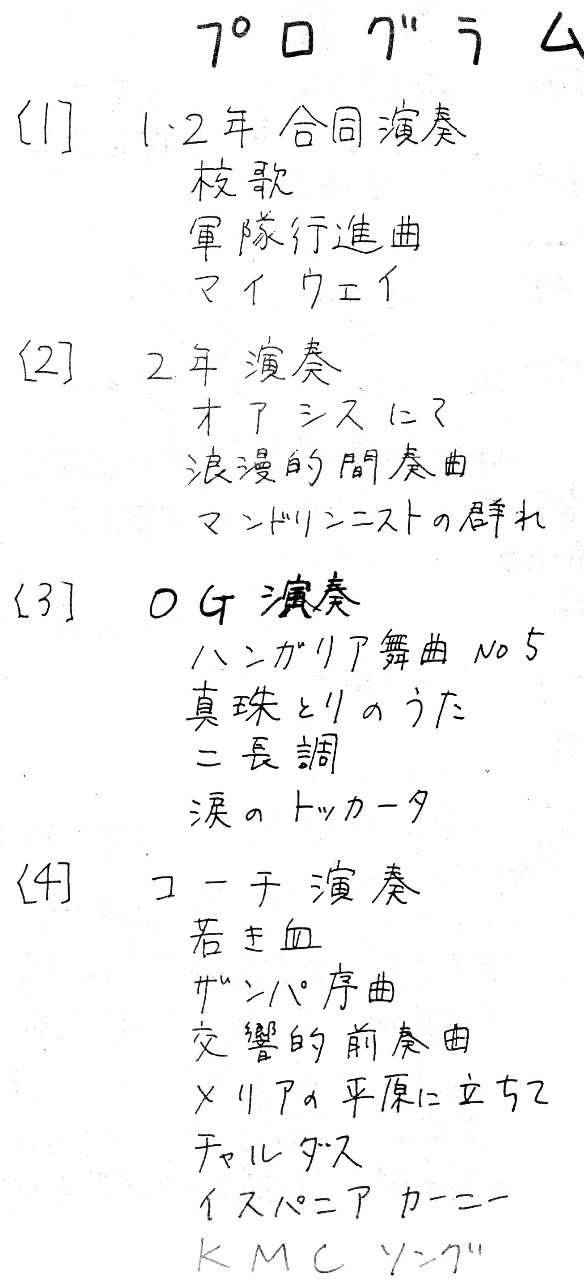 プログラム
[1] 1・2年 合同演奏
校歌
軍隊行進曲
マイ ウェイ
[2] 2年 演奏
オアシスにて
浪漫的間奏曲
マンドリンニストの群れ
[3] OG 演奏
ハンガリア舞曲 No5
真珠とりのうた
ニ長調
涙のトッカータ
[4] コーチ 演奏
若き血
ザンパ序曲
交響的前奏曲
メリアの平原に立ちて
チャルダス
イスパニア カーニー
KMC ソング